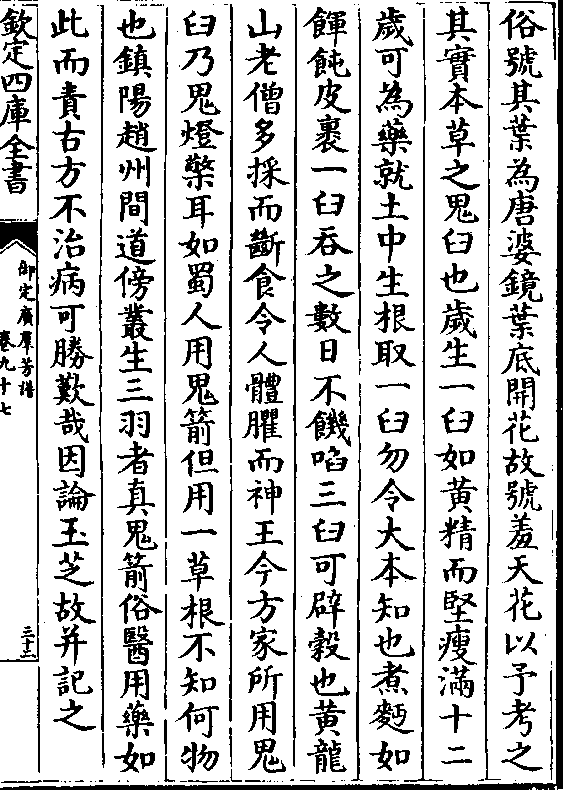 俗號其葉為唐婆鏡葉底開花故號羞天花以予考之
其實本草之鬼臼也歲生一臼如黃精而堅瘦滿十二
歲可為藥就土中生根取一臼勿令大本知也煮麪如
餫飩皮裹一臼吞之數日不饑啗三臼可辟穀也黃龍
山老僧多採而斷食令人體臞而神王今方家所用鬼
臼乃鬼燈檠耳如蜀人用鬼箭但用一草根不知何物
也鎮陽趙州間道傍叢生三羽者真鬼箭俗醫用藥如
此而責古方不治病可勝歎哉因論玉芝故并記之
欽定四庫全書
御定廣羣芳譜
卷九十七
三十二